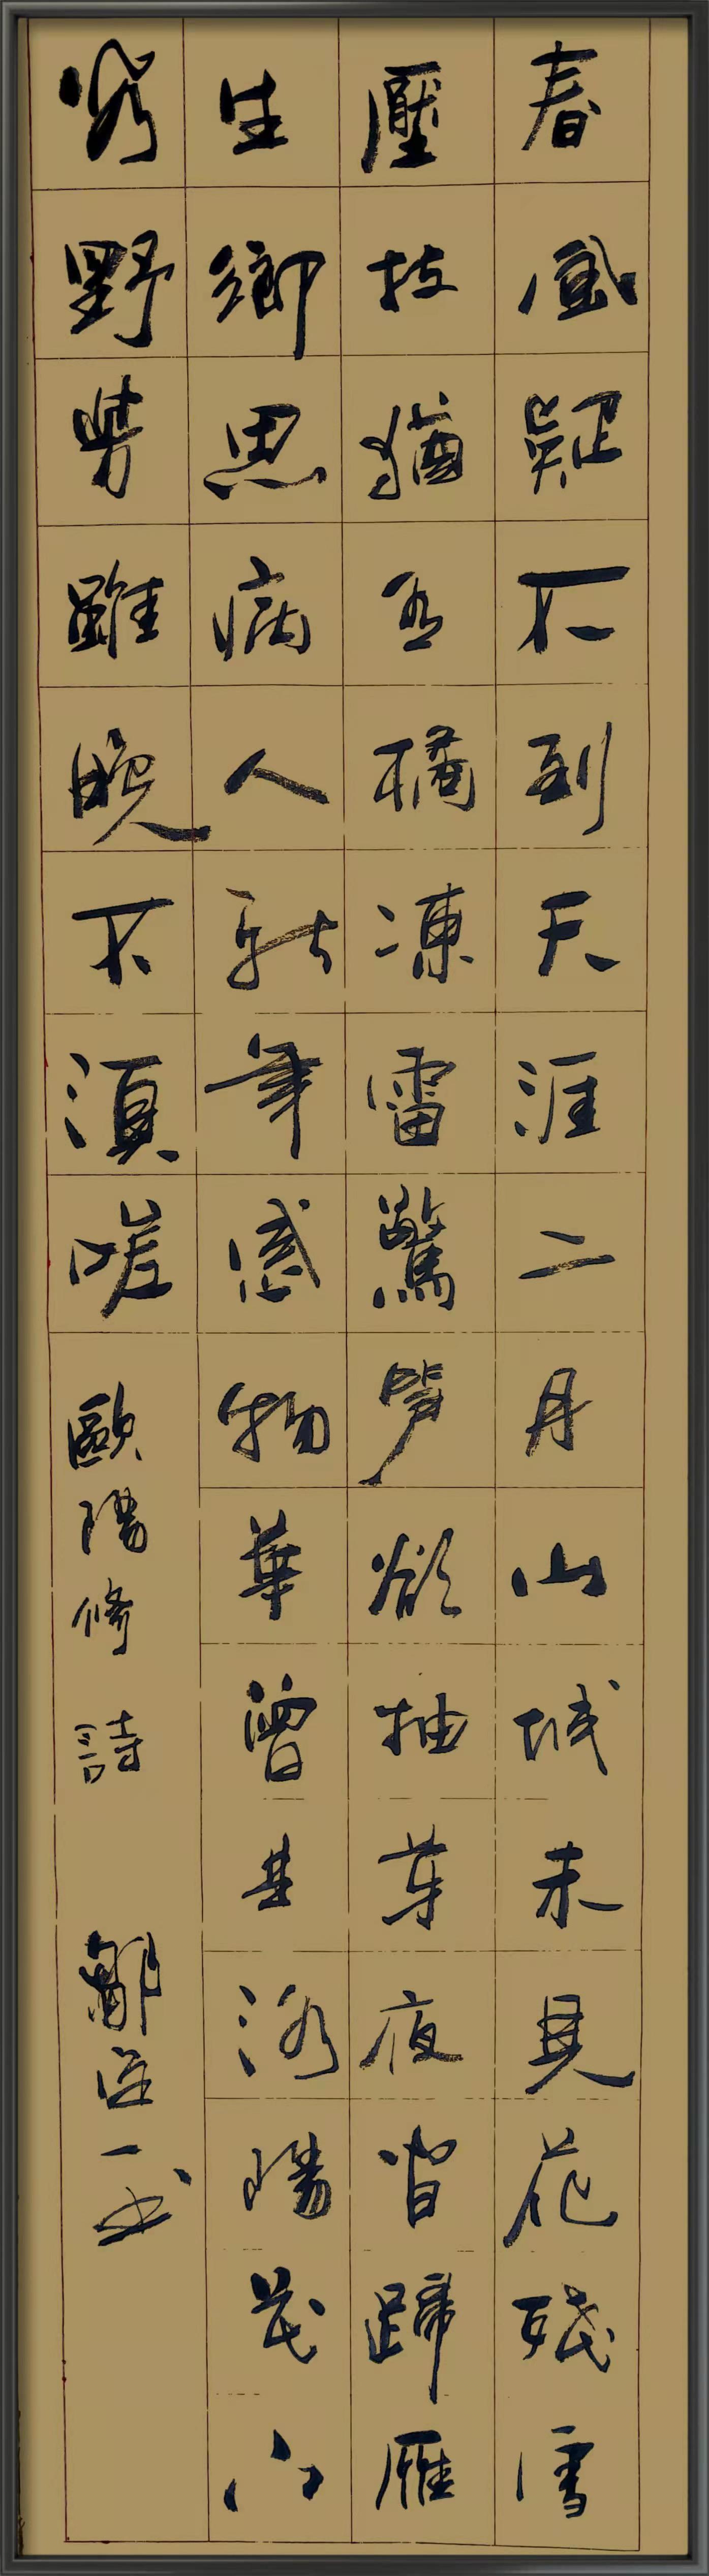 春風疑不到天涯二月山城未見花殘雪
壓枝猶有橘凍雷驚筍欲抽芽夜聞歸雁
生鄉思病入新年感物華曾是洛陽花下
客野芳雖晚不須嗟
歐陽修詩